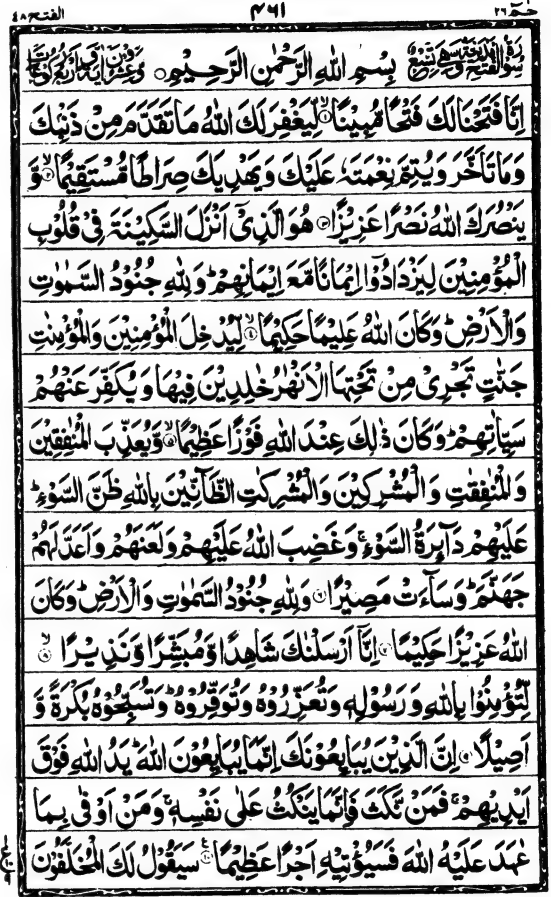 حٰمٓ ٢٦ ٤٦١ الفتح ٤٨
سُوْرَةُ الْفَتْحِ مَدَنِيَّةٌ وَّهِيَ تِسْعٌ بِسْمِ اللهِ الرَّحْمٰنِ الرَّحِيْمِ ○ وَّعِشْرُوْنَ اٰيَةً وَّاَرْبَعُ رُكُوْعَاتٍ
اِنَّا فَتَحْنَا لَكَ فَتْحًا مُّبِيْنًا ۙ﴿١﴾ لِّيَغْفِرَ لَكَ اللهُ مَا تَقَدَّمَ مِنْ ذَنْۢبِكَ
وَمَا تَاَخَّرَ وَيُتِمَّ نِعْمَتَهٗ عَلَيْكَ وَيَهْدِيَكَ صِرَاطًا مُّسْتَقِيْمًا ۙ﴿٢﴾ وَّ
يَنْصُرَكَ اللهُ نَصْرًا عَزِيْزًا ﴿٣﴾ هُوَ الَّذِيْٓ اَنْزَلَ السَّكِيْنَةَ فِيْ قُلُوْبِ
الْمُؤْمِنِيْنَ لِيَزْدَادُوْٓا اِيْمَانًا مَّعَ اِيْمَانِهِمْ ؕ وَلِلّٰهِ جُنُوْدُ السَّمٰوٰتِ
وَالْاَرْضِ ؕ وَكَانَ اللهُ عَلِيْمًا حَكِيْمًا ۙ﴿٤﴾ لِّيُدْخِلَ الْمُؤْمِنِيْنَ وَالْمُؤْمِنٰتِ
جَنّٰتٍ تَجْرِيْ مِنْ تَحْتِهَا الْاَنْهٰرُ خٰلِدِيْنَ فِيْهَا وَيُكَفِّرَ عَنْهُمْ
سَيِّاٰتِهِمْ ؕ وَكَانَ ذٰلِكَ عِنْدَ اللهِ فَوْزًا عَظِيْمًا ۙ﴿٥﴾ وَّيُعَذِّبَ الْمُنٰفِقِيْنَ
وَالْمُنٰفِقٰتِ وَالْمُشْرِكِيْنَ وَالْمُشْرِكٰتِ الظَّآنِّيْنَ بِاللهِ ظَنَّ السَّوْءِ ؕ
عَلَيْهِمْ دَآئِرَةُ السَّوْءِ ۚ وَغَضِبَ اللهُ عَلَيْهِمْ وَلَعَنَهُمْ وَاَعَدَّ لَهُمْ
جَهَنَّمَ ؕ وَسَآءَتْ مَصِيْرًا ﴿٦﴾ وَلِلّٰهِ جُنُوْدُ السَّمٰوٰتِ وَالْاَرْضِ ؕ وَكَانَ
اللهُ عَزِيْزًا حَكِيْمًا ﴿٧﴾ اِنَّآ اَرْسَلْنٰكَ شَاهِدًا وَّمُبَشِّرًا وَّنَذِيْرًا ۙ﴿٨﴾
لِّتُؤْمِنُوْا بِاللهِ وَرَسُوْلِهٖ وَتُعَزِّرُوْهُ وَتُوَقِّرُوْهُ ؕ وَتُسَبِّحُوْهُ بُكْرَةً وَّ
اَصِيْلًا ﴿٩﴾ اِنَّ الَّذِيْنَ يُبَايِعُوْنَكَ اِنَّمَا يُبَايِعُوْنَ اللهَ ؕ يَدُ اللهِ فَوْقَ
اَيْدِيْهِمْ ۚ فَمَنْ نَّكَثَ فَاِنَّمَا يَنْكُثُ عَلٰى نَفْسِهٖ ۚ وَمَنْ اَوْفٰى بِمَا
عٰهَدَ عَلَيْهُ اللهَ فَسَيُؤْتِيْهِ اَجْرًا عَظِيْمًا ﴿١٠﴾ سَيَقُوْلُ لَكَ الْمُخَلَّفُوْنَ